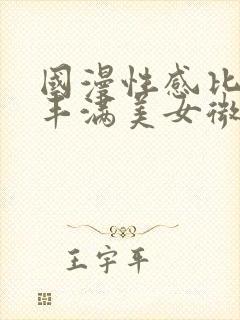 國漫性感比
丰满美女微
王宇平